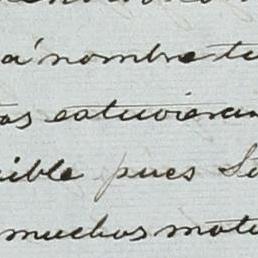 a' nombre tu
as estuvieran
ible pues Se
muchos moti